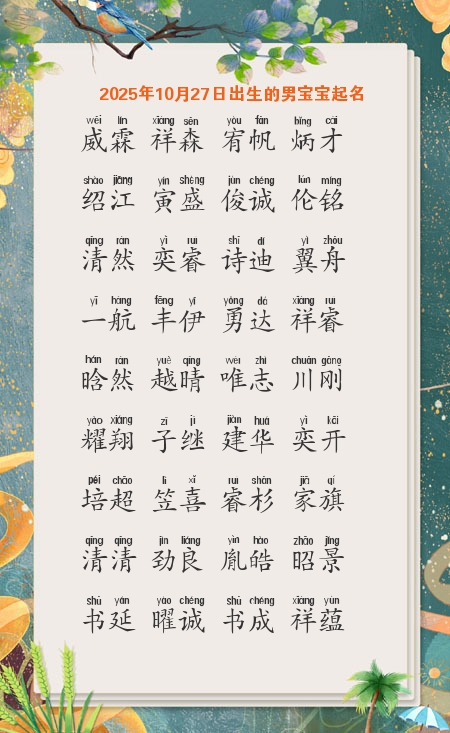 2025年10月27日出生的男宝宝起名
wēi lín xiáng sēn yòu fān bǐng cái
威霖 祥森 宥帆 炳才
shào jiāng yín shèng jùn chéng lún míng
绍江 寅盛 俊诚 伦铭
qīng rán yì ruì shī dí yì zhōu
清然 奕睿 诗迪 翼舟
yī háng fēng yī yǒng dá xiáng ruì
一航 丰伊 勇达 祥睿
hán rán yuè qíng wéi zhì chuān gāng
晗然 越晴 唯志 川刚
yào xiáng zǐ jì jiàn huá yì kāi
耀翔 子继 建华 奕开
péi chāo lì xǐ ruì shān jiā qí
培超 笠喜 睿杉 家旗
qīng qīng jìn liáng yìn hào zhāo jǐng
清清 劲良 胤皓 昭景
shū yán yào chéng shū chéng xiáng yùn
书延 曜诚 书成 祥蕴